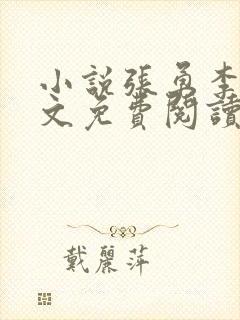 小說張勇李
文免費閱讀
戴麗萍